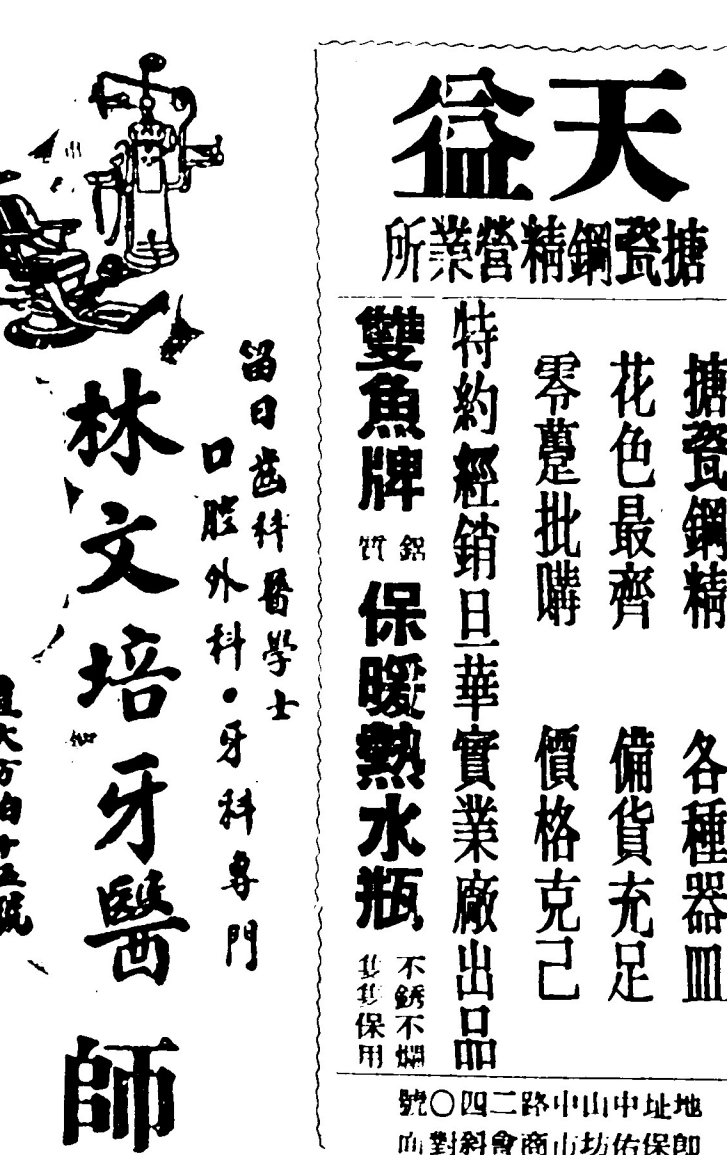 天益
搪瓷鋼精營業所
搪瓷鋼精 各種器皿
花色最齊 備貨充足
零躉批購 價格克己
特約經銷旦華實業廠出品
雙魚牌
鋁質
保暖熱水瓶
不銹不爛
隻隻保用
地址中山中路二四〇號
即保佑坊市商會斜對面
留日齒科醫學士
口腔外科•牙科專門
林文培牙醫師